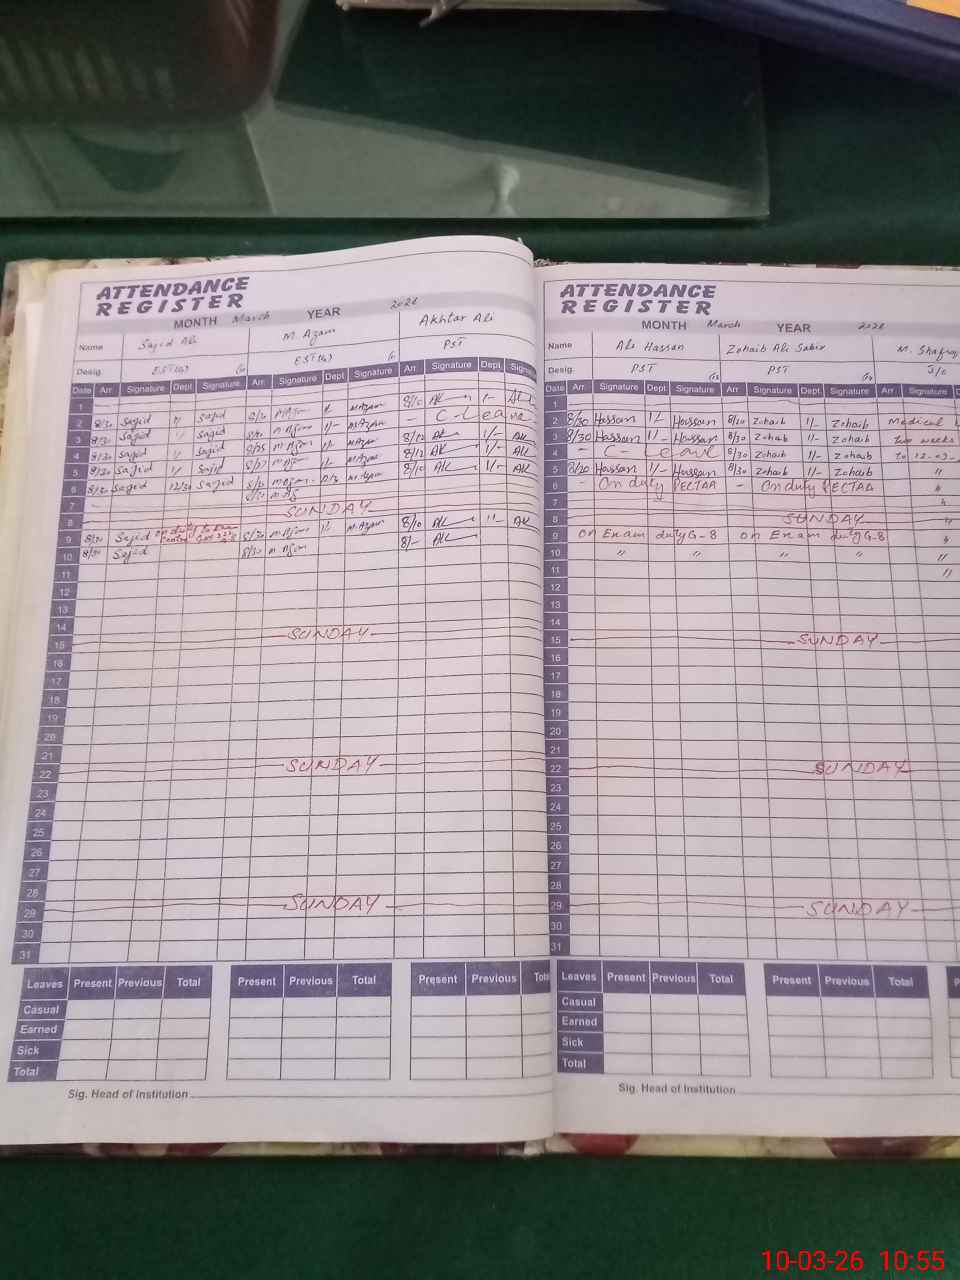 ATTENDANCE
REGISTER
MONTH March YEAR 2026
Name Sajid Ali M. Azam Akhtar Ali
Desig. EST(W) PST
Date Arr. Signature Dept. Signature Arr. Signature Dept. Signature Arr. Signature Dept. Signature
1
2 8/30 Sajid Sajid M Azam 8/10 AK
3 8/30 Sajid Sajid M Azam C-Leave
4 8/30 Sajid Sajid M Azam AK 1/- AK
5 8/30 Sajid Sajid M Azam AK 1/- AK
6 8/30 Sajid 12/30 Sajid M Azam 8/10 AK AK
7
8 SUNDAY
9 8/30 Sajid M Azam M Azam 8/10 AK AK
10 8/30 Sajid 8/30 M Azam 8/- AK
11
12
13
14
15 SUNDAY
16
17
18
19
20
21
22 SUNDAY
23
24
25
26
27
28
29 SUNDAY
30
31
Leaves Present Previous Total Present Previous Total Present Previous Total
Casual
Earned
Sick
Total
Sig. Head of Institution
ATTENDANCE
REGISTER
MONTH March YEAR 2026
Name Ali Hassan Zohaib Ali Sabir M. Shafiq
Desig. PST PST J/C
Date Arr. Signature Dept. Signature Arr. Signature Dept. Signature Arr. Signature
1
2 8/30 Hassan 1/- Hassan 8/30 Zohaib 1/- Zohaib Medical
3 8/30 Hassan 1/- Hassan 8/30 Zohaib 1/- Zohaib two weeks
4 - C-Leave 8/30 Zohaib 1/- Zohaib to 12-03-
5 8/30 Hassan 1/- Hassan 8/30 Zohaib 1/- Zohaib "
6 - On duty PECTAA - On duty PECTAA "
7 "
8 SUNDAY "
9 on Exam duty G-8 on Exam duty G-8 "
10 " " " " "
11 "
12
13
14
15 SUNDAY
16
17
18
19
20
21
22 SUNDAY
23
24
25
26
27
28
29 SUNDAY
30
31
Leaves Present Previous Total Present Previous Total
Casual
Earned
Sick
Total
Sig. Head of Institution
10-03-26 10:55